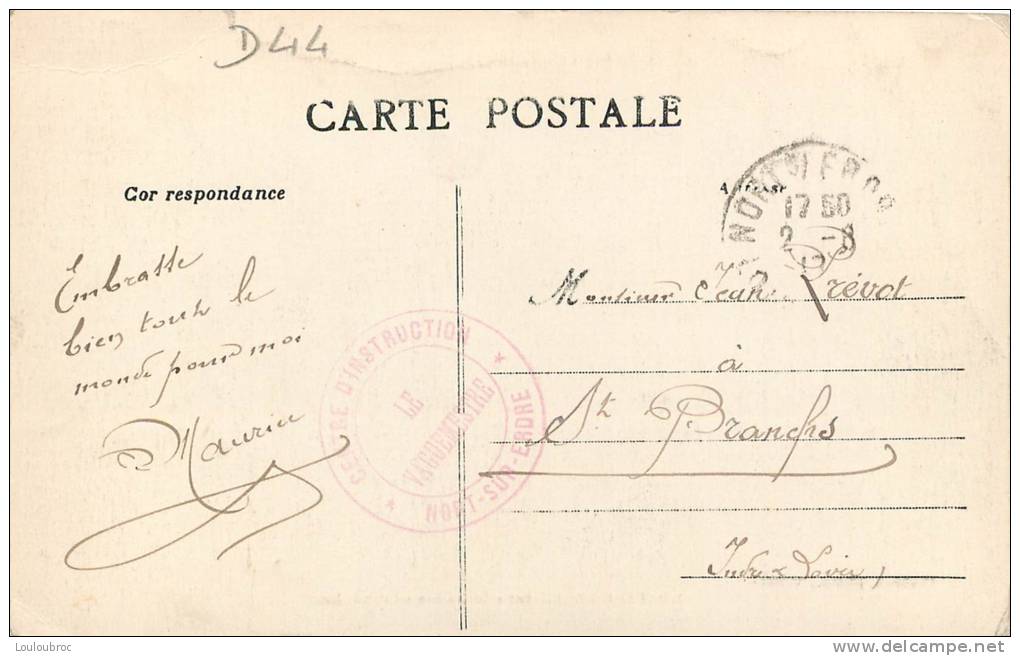 D44
CARTE POSTALE
Cor respondance
Adresse
NORT S/ ERDRE
17 50
2 -8
Embrasse
bien tout le
monde pour moi
Maurice
CENTRE D'INSTRUCTION
LE
VAGUEMESTRE
NORT-SUR-ERDRE
Monsieur Jean Prévot
à
St Branchs
Indre & Loire
Louloubroc
www.delcampe.net